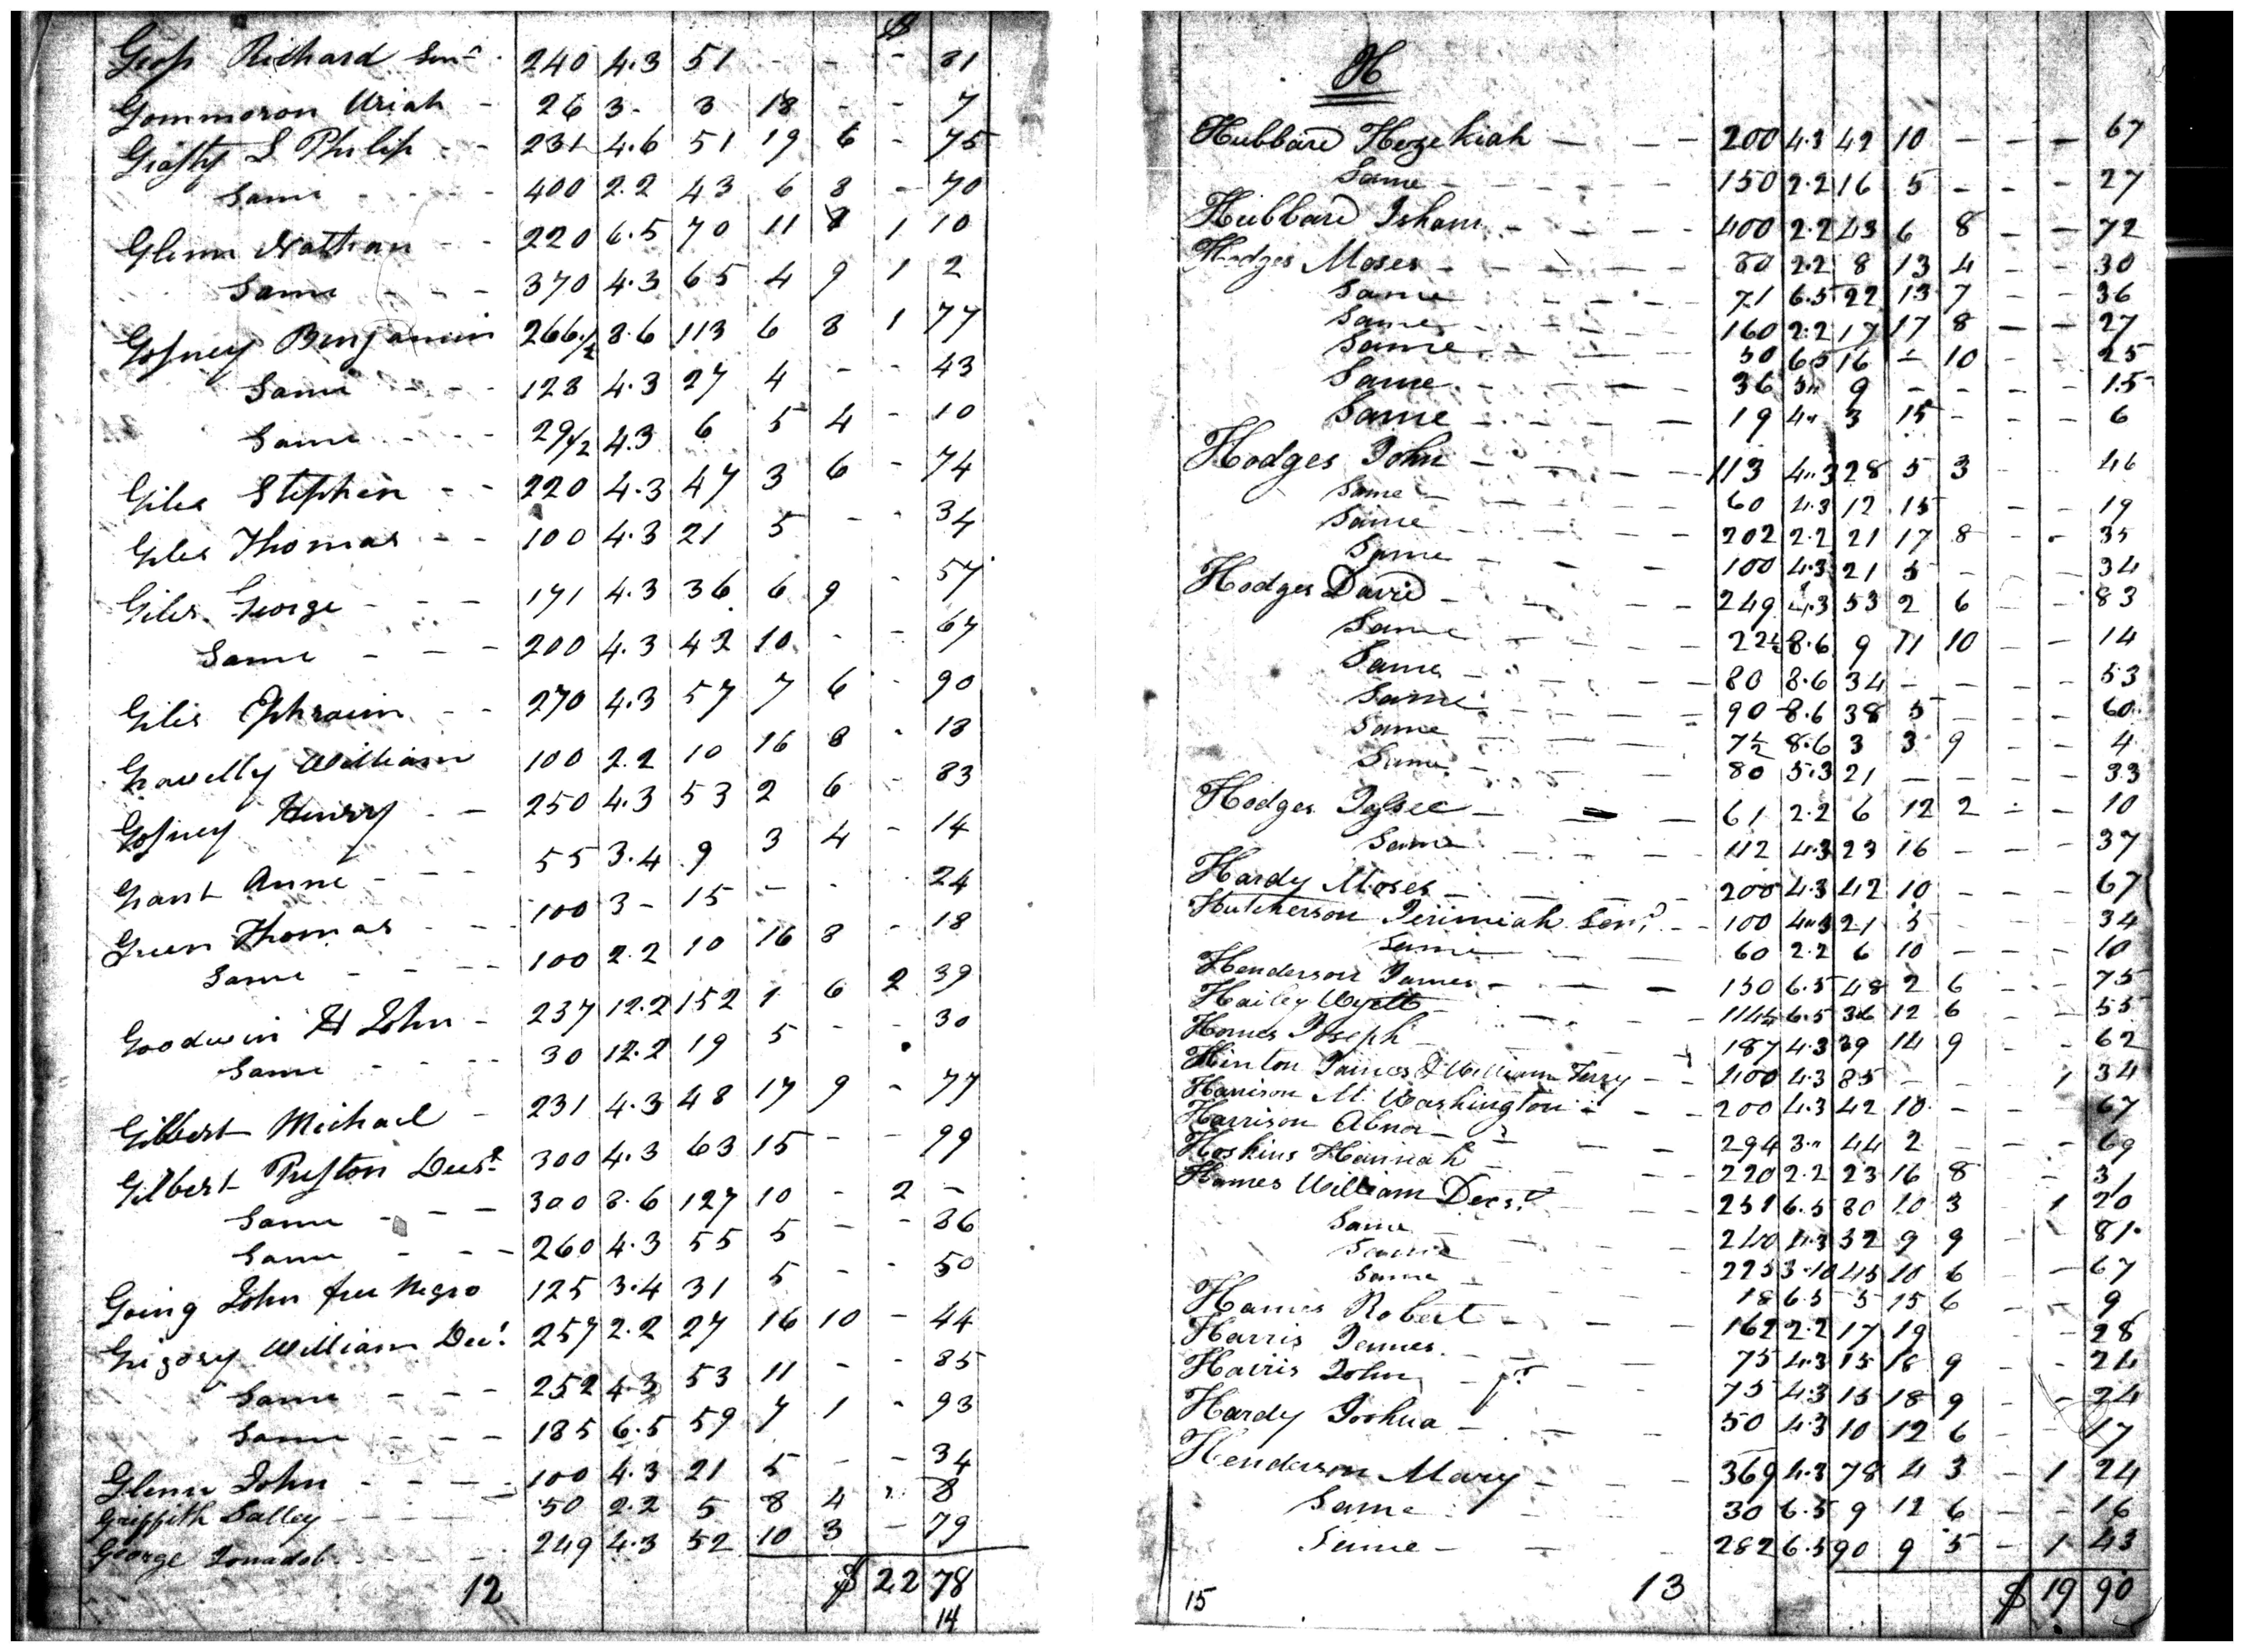 $
Goss Richard Senr. 240 4.3 51 - - - 81
Gommoron Uriah - 26 3- 3 18 - - 7
Grafty S Philip - - 231 4.6 51 19 6 - 75
Same - - - - 400 2.2 43 6 8 - 70
Glenn Nathan - - 220 6.5 70 11 8 1 10
Same - - - 370 4.3 65 4 9 1 2
Gosney Benjamin 266 1/2 8.6 113 6 8 1 77
Same - - - 128 4.3 27 4 - - 43
Same - - - 29 1/2 4.3 6 5 4 - 10
Giles Stephen - - 220 4.3 47 3 6 - 74
Giles Thomas - - 100 4.3 21 5 - - 34
Giles George - - - 171 4.3 36 6 9 - 57
Same - - - 200 4.3 42 10 - - 67
Giles Ephraim - - 270 4.3 57 7 6 - 90
Gravelly William 100 2.2 10 16 8 - 18
Gosney Henry - - 250 4.3 53 2 6 - 83
Grant Anne - - - 55 3.4 9 3 4 - 14
Green Thomas - - 100 3- 15 - - - 24
Same - - - - 100 2.2 10 16 8 - 18
Goodwin H John - 237 12.2 152 1 6 2 39
Same - - - 30 12.2 19 5 - - 30
Gilbert Michael - 231 4.3 48 17 9 - 77
Gilbert Preston Decsd. 300 4.3 63 15 - - 99
Same - - - 300 8.6 127 10 - 2 -
Same - - - 260 4.3 55 5 - - 86
Going John free Negro 125 3.4 31 5 - - 50
Grigory William Decd. 257 2.2 27 16 10 - 44
Same - - - 252 4.3 53 11 - - 85
Same - - - 185 6.5 59 7 1 - 93
Glenn John - - - 100 4.3 21 5 - - 34
Griffith Salley - - - 50 2.2 5 8 4 - 8
George Jonadab - - - 249 4.3 52 10 3 - 79
12 $ 22 78
14
H
Hubbard Hezekiah - - - 200 4.3 42 10 - - - 67
Same - - - - 150 2.2 16 5 - - - 27
Hubbard Isham - - - - 400 2.2 43 6 8 - - 72
Hodges Moses - - - - 80 2.2 8 13 4 - - 30
Same - - - 71 6.5 22 13 7 - - 36
Same - - - 160 2.2 17 17 8 - - 27
Same - - - 50 6.5 16 - 10 - - 25
Same - - - 36 5" 9 - - - - 15
Same - - - 19 4" 3 15 - - - 6
Hodges John - - - 113 4"3 28 5 3 - - 46
Same - - - 60 4.3 12 15 - - 19
Same - - - 202 2.2 21 17 8 - - 35
Same - - - 100 4.3 21 5 - - - 34
Hodges David - - - 249 4.3 53 2 6 - - 83
Same - - - 22 1/2 8.6 9 11 10 - - 14
Same - - - 80 8.6 34 - - - - 53
Same - - - 90 8.6 38 5 - - - 60
Same - - - 7 1/2 8.6 3 3 9 - - 4
Same - - - 80 5.3 21 - - - - 33
Hodges Jesse - - - 61 2.2 6 12 2 - - 10
Same - - - 112 4.3 23 16 - - - 37
Hardy Moses - - - 200 4.3 42 10 - - - 67
Hutcherson Jerimiah Senr. - - 100 4"3 21 5 - - 34
Same - - 60 2.2 6 10 - - - 10
Henderson James - - - 150 6.5 48 2 6 - - 75
Hailey Wyatt - - - 114 1/2 6.5 36 12 6 - - 55
Homes Joseph - - - 187 4.3 39 14 9 - - 62
Hinton James & William Terry - - 400 4.3 85 - - - 1 34
Harrison M. Washington - - - 200 4.3 42 10 - - - 67
Harrison Abner - - - 294 3" 44 2 - - - 69
Hoskins Hanniah - - - 220 2.2 23 16 8 - - 31
Hames William Decsd. - - 251 6.5 80 10 3 - 1 20
Same - - - 240 4.3 32 9 9 - - 81
Same - - - 225 3.10 45 10 6 - - 67
Same - - - 18 6.5 5 15 6 - - 9
Hames Robert - - - 162 2.2 17 19 - - 28
Harris James - - - 75 4.3 15 18 9 - - 24
Harris John - - - 75 4.3 15 18 9 - - 24
Hardy Joshua - - - 50 4.3 10 12 6 - - 17
Henderson Mary - - - 369 4.3 78 4 3 - 1 24
Same - - - 30 6.5 9 12 6 - - 16
Same - - - 282 6.5 90 9 5 - 1 43
15 13 $ 19 90